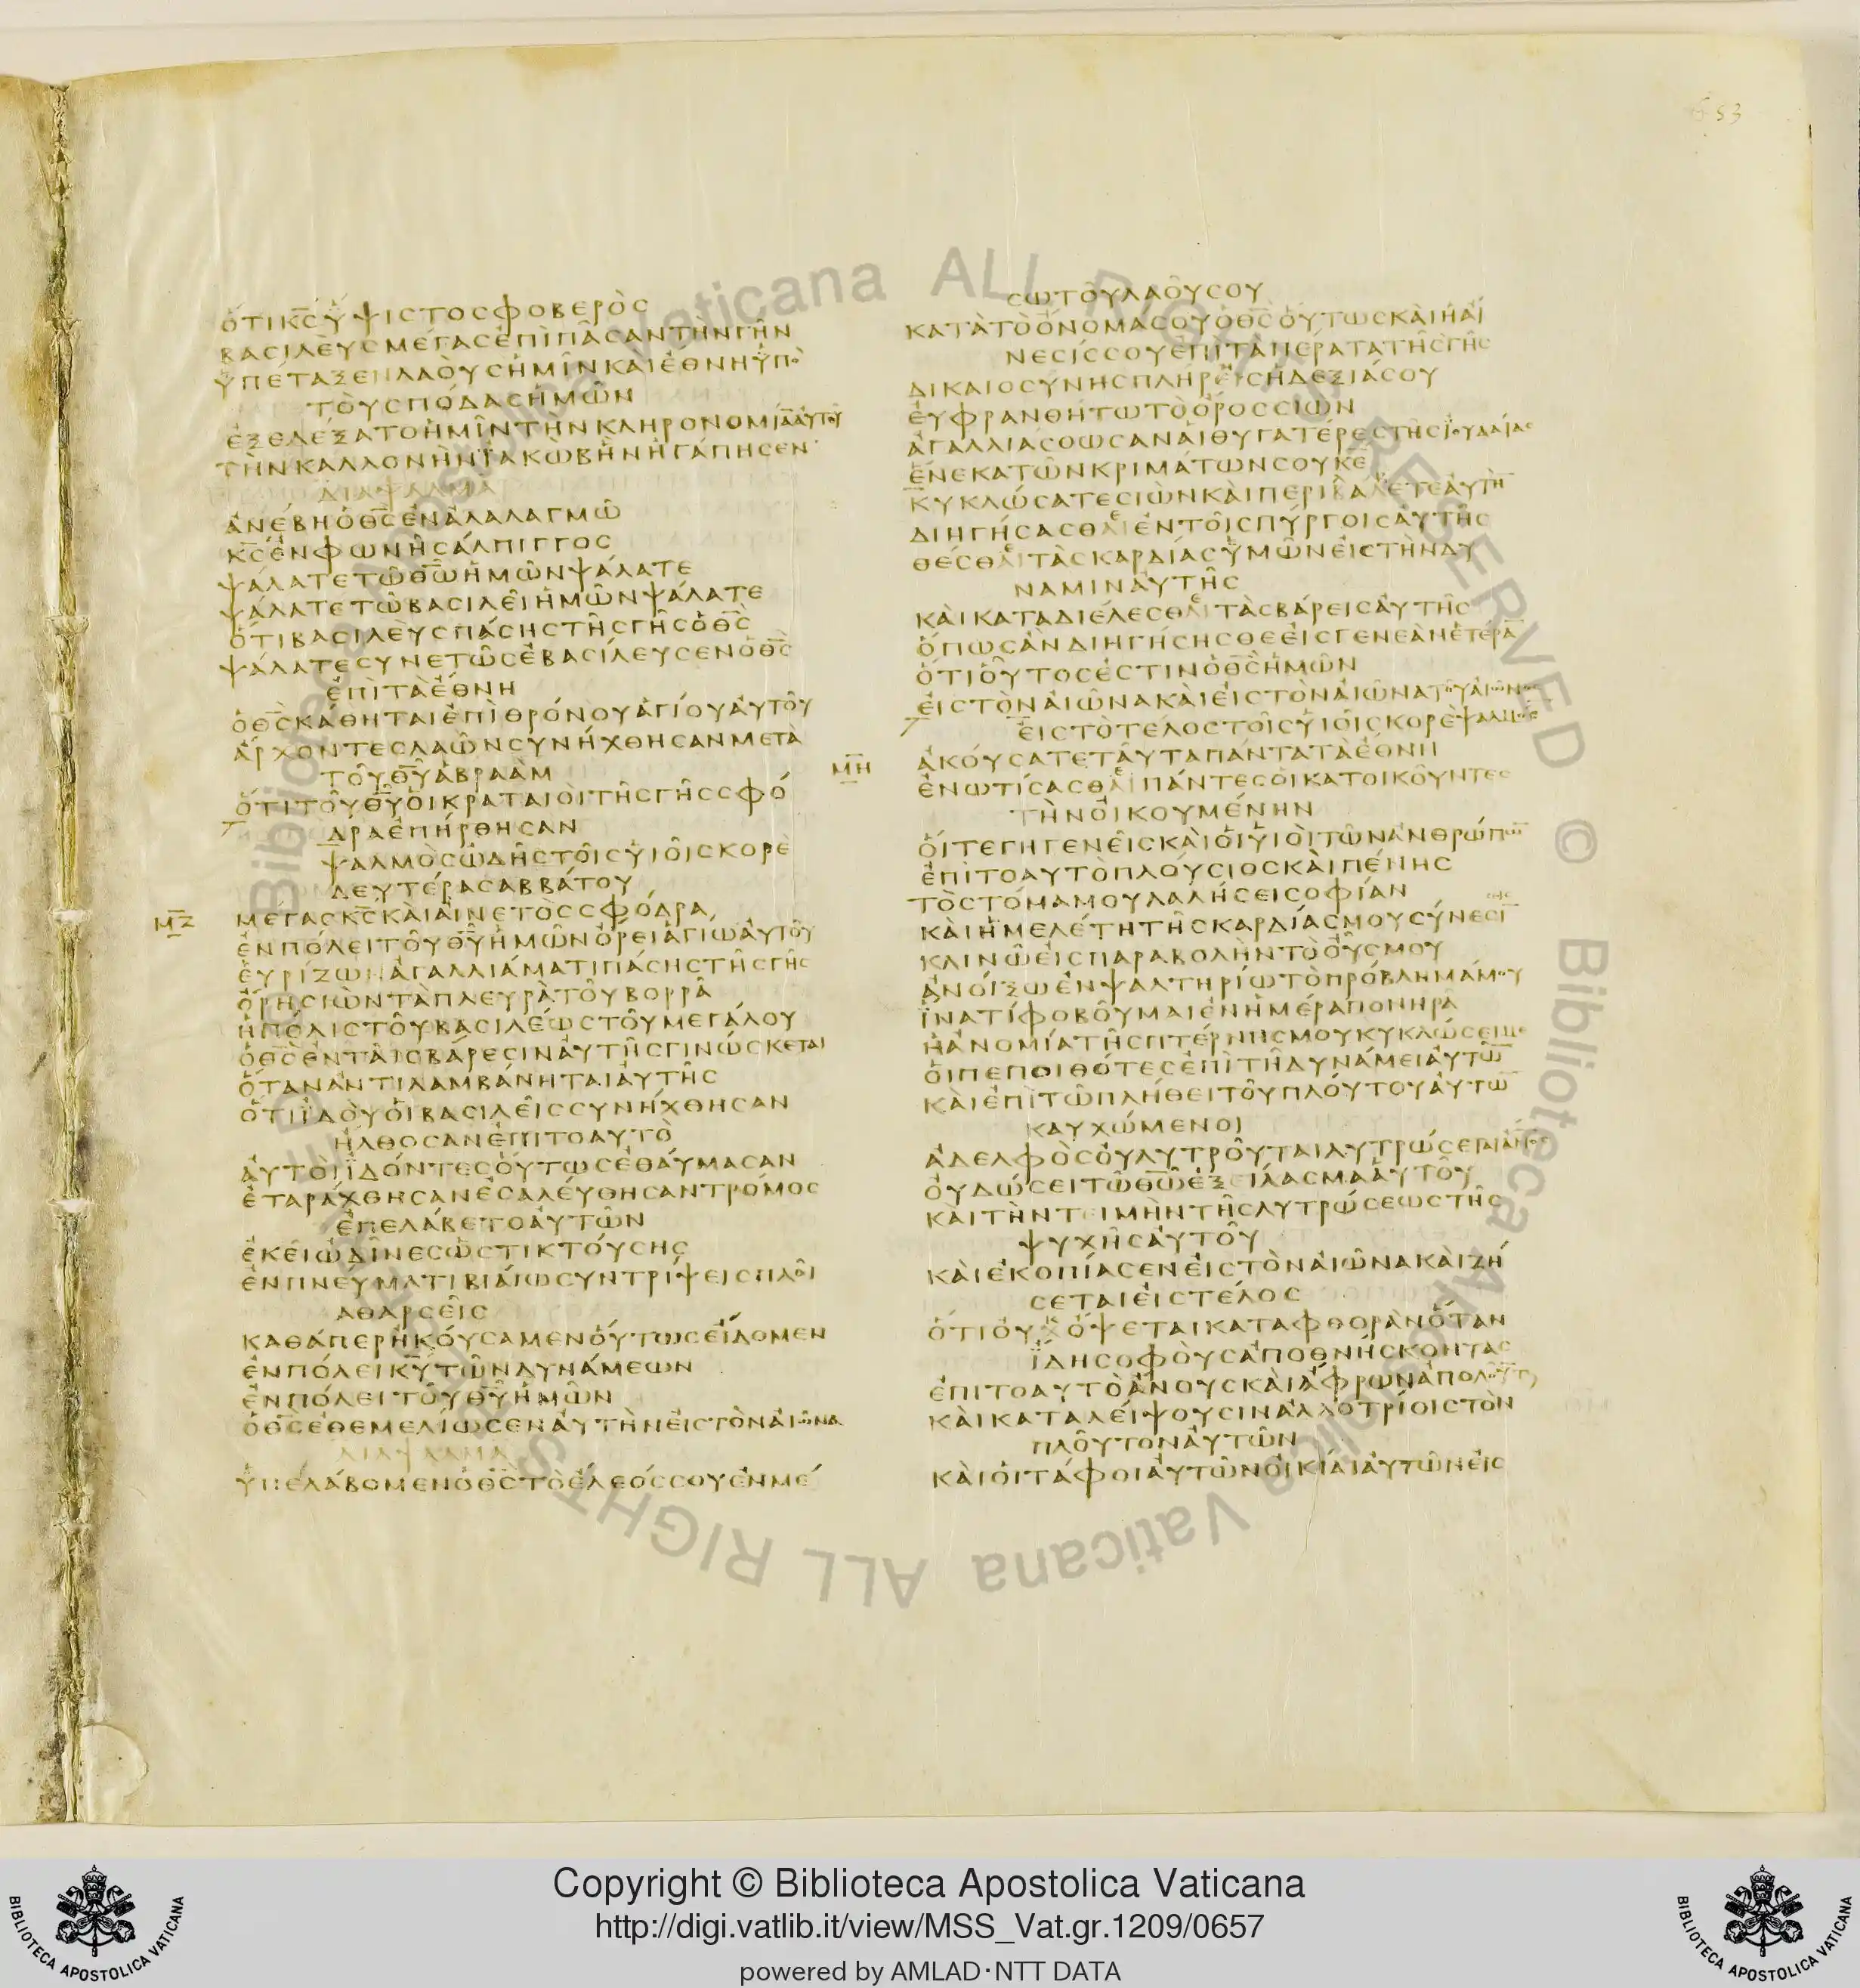 653
ὅτι κ̅ς̅ ὕψιστος φοβερὸς
βασιλεὺς μέγας ἐπὶ πᾶσαν τὴν γῆν
ὑπέταξεν λαοὺς ἡμῖν καὶ ἔθνη ὑπὸ
τοὺς πόδας ἡμῶν
ἐξελέξατο ἡμῖν τὴν κληρονομίαν αὐτοῦ
τὴν καλλονὴν ϊακὼβ ἣν ἠγάπησεν
διαψαλμα
ἀνέβη ὁ θ̅ς̅ ἐν ἀλαλαγμῶ
κ̅ς̅ ἐν φωνῆ σάλπιγγος
ψάλατε τῶ θ̅ω̅ ἡμῶν ψάλατε
ψάλατε τῶ βασιλεῖ ἡμῶν ψάλατε
ὅτι βασιλεὺς πάσης τῆς γῆς ὁ θ̅ς̅
ψάλατε συνετῶς ἐβασίλευσεν ὁ θ̅ς̅
ἐπὶ τὰ ἔθνη
ὁ θ̅ς̅ κάθηται ἐπὶ θρόνου ἁγίου αὐτοῦ
ἄρχοντες λαῶν συνήχθησαν μετὰ
τοῦ θ̅υ̅ ἀβραὰμ
ὅτι τοῦ θ̅υ̅ οἱ κραταιοὶ τῆς γῆς σφό
δρα ἐπήρθησαν
ψαλμὸς ὠδῆς τοῖς υἱοῖς κορὲ
δευτέρα σαββάτου
μ̅ζ̅
μέγας κ̅ς̅ καὶ αἰνετὸς σφόδρα
ἐν πόλει τοῦ θ̅υ̅ ἡμῶν ὄρει ἁγίω αὐτοῦ
εὐρίζων ἀγαλλιάματι πάσης τῆς γῆς
ὄρη σιὼν τὰ πλευρὰ τοῦ βορρᾶ
ἡ πόλις τοῦ βασιλέως τοῦ μεγάλου
ὁ θ̅ς̅ ἐν ταῖς βάρεσιν αὐτῆς γινώσκεται
ὅταν ἀντιλαμβάνηται αὐτῆς
ὅτι ϊδοὺ οἱ βασιλεῖς συνήχθησαν
ἤλθοσαν ἐπιτοαυτὸ
αὐτοὶ ϊδόντες οὕτως ἐθαύμασαν
ἐταράχθησαν ἐσαλεύθησαν τρόμος
ἐπελάβετο αὐτῶν
ἐκεῖ ὠδῖνες ὡς τικτούσης
ἐν πνεύματι βιαίω συντρίψεις πλοῖ
α θαρσεῖς
καθάπερ ἠκούσαμεν οὕτως εἴδομεν
ἐν πόλει κ̅υ̅ τῶν δυνάμεων
ἐν πόλει τοῦ θ̅υ̅ ἡμῶν
ὁ θ̅ς̅ ἐθεμελίωσεν αὐτὴν εἰς τὸν αἰῶνα
διαψαλμα
ὑπελάβομεν ὁ θ̅ς̅ τὸ ἔλεός σου ἐν μέ
σω τοῦ λαοῦ σου
κατὰ τὸ ὄνομά σου ὁ θ̅ς̅ οὕτως καὶ ἡ αἴ
νεσίς σου ἐπὶ τὰ πέρατα τῆς γῆς
δικαιοσύνης πλήρεις ἡ δεξιά σου
εὐφρανθήτω τὸ ὄρος σιὼν
ἀγαλλιάσθωσαν αἱ θυγατέρες τῆς ϊουδαίας
ἕνεκα τῶν κριμάτων σου κ̅ε̅
κυκλώσατε σιὼν καὶ περιλάβετε αὐτὴ̅
διηγήσασθαι ἐν τοῖς πύργοις αὐτῆς
θέσθαι τὰς καρδίας ὑμῶν εἰς τὴν δύ
ναμιν αὐτῆς
καὶ καταδιέλεσθαι τὰς βάρεις αὐτῆς
ὅπως ἂν διηγήσησθε εἰς γενεὰν ἑτέρα̅
ὅτι οὗτός ἐστιν ὁ θ̅ς̅ ἡμῶν
εἰς τὸν αἰῶνα καὶ εἰς τὸν αἰῶνα τοῦ αἰῶνος
εἰς τὸ τέλος τοῖς υἱοῖς κορὲ ψαλμός
μ̅η̅
ἀκούσατε ταῦτα πάντα τὰ ἔθνη
ἐνωτίσασθαι πάντες οἱ κατοικοῦντες
τὴν οἰκουμένην
οἵ τε γηγενεῖς καὶ οἱ υἱοὶ τῶν ἀνθρώπω̅
ἐπιτοαυτὸ πλούσιος καὶ πένης
τὸ στόμα μου λαλήσει σοφίαν
καὶ ἡ μελέτη τῆς καρδίας μου σύνεσι̅
κλινῶ εἰς παραβολὴν τὸ οὖς μου
ἀνοίξω ἐν ψαλτηρίω τὸ πρόβλημά μου
ϊνατί φοβοῦμαι ἐν ἡμέρα πονηρᾶ
ἡ ἀνομία τῆς πτέρνης μου κυκλώσει με
οἱ πεποιθότες ἐπὶ τῆ δυνάμει αὐτῶ̅
καὶ ἐπὶ τῶ πλήθει τοῦ πλούτου αὐτω̅
καυχώμενοι
ἀδελφὸς οὐ λυτροῦται λυτρώσεται ἄν̅ο̅ς̅
οὐ δώσει τῶ θ̅ω̅ ἐξειλασμα αὑτοῦ
και τὴν τειμὴν τῆς λυτρώσεως τῆς
ψυχῆς αὐτοῦ
καὶ ἐκοπίασεν εἰς τὸν αἰῶνα καὶ ζή
σεται εἰς τέλος
ὅτι οὐχ ὄψεται καταφθορὰν ὅταν
ἴδη σοφοὺς ἀποθνήσκοντας
ἐπιτοαυτὸ ἄνους καὶ ἄφρων ἀπολοῦνται
καὶ καταλείψουσιν ἀλλοτρίοις τὸν
πλοῦτον αὐτῶν
καὶ οἱ τάφοι αὐτῶν οἰκίαι αὐτῶν εἰς
Biblioteca Apostolica Vaticana ALL RIGHTS RESERVED ©
Copyright © Biblioteca Apostolica Vaticana
http://digi.vatlib.it/view/MSS_Vat.gr.1209/0657
powered by AMLAD·NTT DATA
BIBLIOTECA APOSTOLICA VATICANA
BIBLIOTECA APOSTOLICA VATICANA